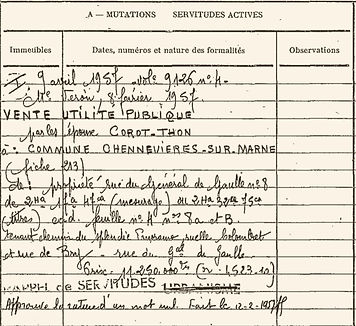 A — MUTATIONS SERVITUDES ACTIVES
Immeubles Dates, numéros et nature des formalités Observations
I. 9 avril 1957 vol. 9126 n° 4.
Me 8 février 1957.
VENTE UTILITÉ PUBLIQUE
par les époux COROT-THON
à: COMMUNE CHENNEVIERES-SUR-MARNE
(fiche 213)
de: propriété rue du Général de Gaulle n° 8
de 2Ha 17a 47ca (mesurage) ou 2Ha 32a 75ca
(titres) cad. feuille n° 4 nos 8a et B.
tenant chemin du splendid Panorama ruelle
et rue de Bry - rue du Gal de Gaulle
Prix: 11.250.000 frs
RAPPEL de SERVITUDES URBANISME
Approuvé la rature d'un mot nul. Fait le 12-2-1957